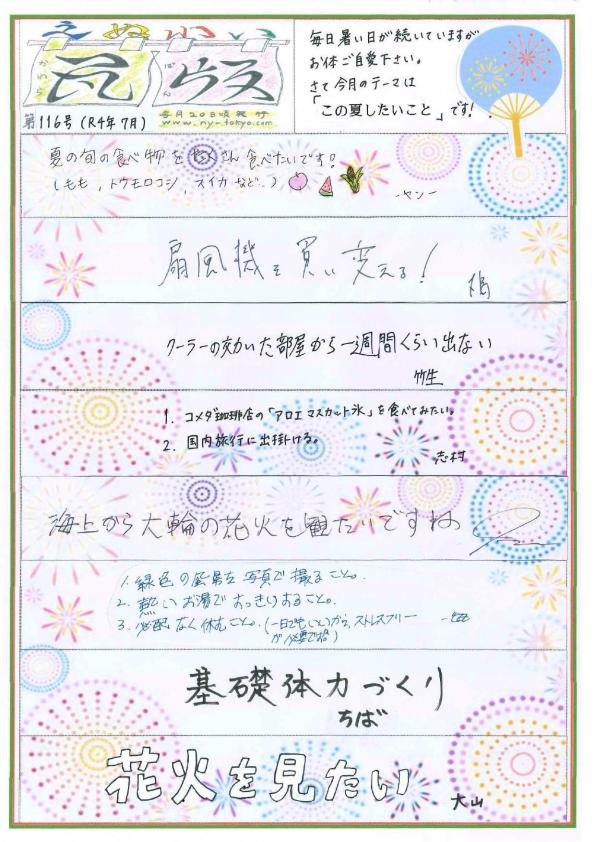 えぬわい
かわらばん
第116号 (R4年7月)
毎月20日頃発行
www.ny-tokyo.com
毎日暑い日が続いていますが
お体ご自愛下さい。
さて今月のテーマは
「この夏したいこと」です!
夏の旬の食べ物をたくさん食べたいです!
(もも,トウモロコシ,スイカなど..)
-ヤン-
扇風機を買い変える!
クーラーの効いた部屋から一週間くらい出ない
竹生
1. コメダ珈琲店の「アロエマスカット氷」を食べてみたい。
2. 国内旅行に出掛ける。
志村
海上から大輪の花火を観たいですね
1. 緑色の風景を写真で撮ること。
2. 熱いお湯ですっきりすること。
3. 心配なく休むこと。(一日でもいいから、ストレスフリー
が必要で格)
基礎体力づくり
ちば
花火を見たい
大山